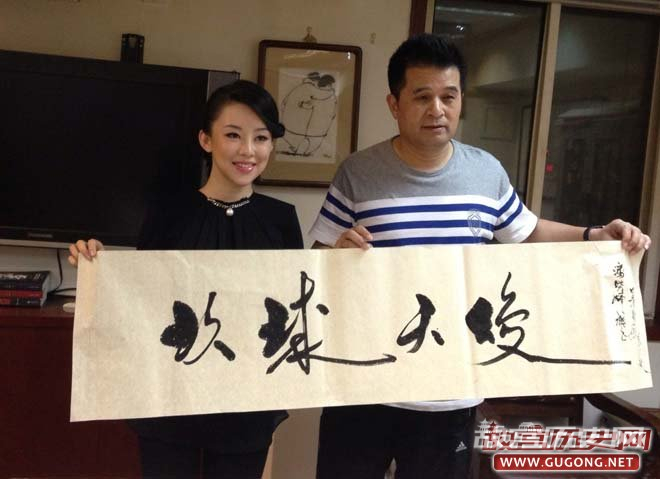 玖球天後
故宫历史网
WWW.GUGONG.NET